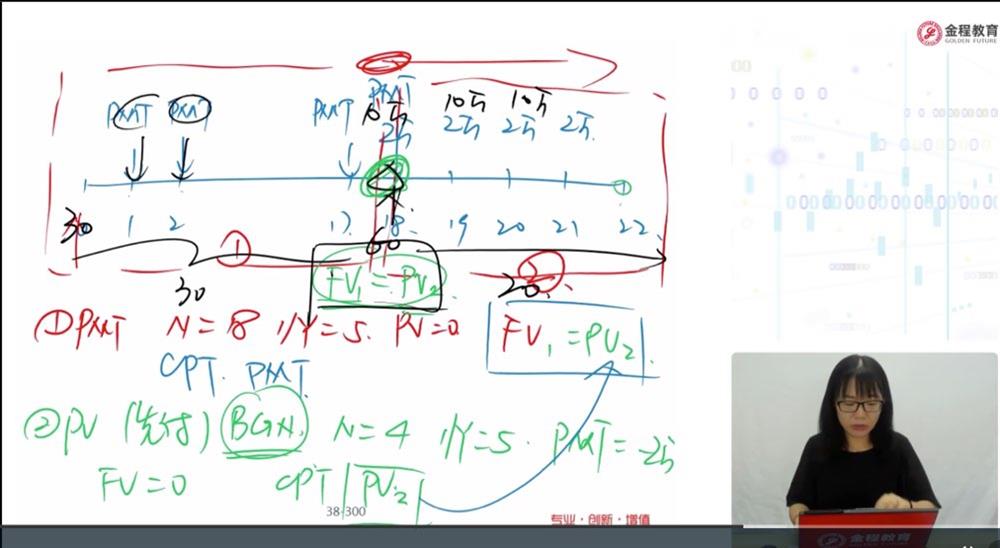 金程教育
GOLDEN FUTURE
PMT PMT PMT PMT
10万 10万 10万
2万 2万 2万 2万
1 2 17 18 19 20 21 22
30 60
① ②
30 20
FV₁ = PV₂
①PMT N=18 I/Y=5. PV=0 FV₁ = PV₂.
CPT. PMT
②PV (先付) BGN. N=4 I/Y=5. PMT=-2万
FV=0 CPT PV₂
38-300
专业·创新·增值
金程教育